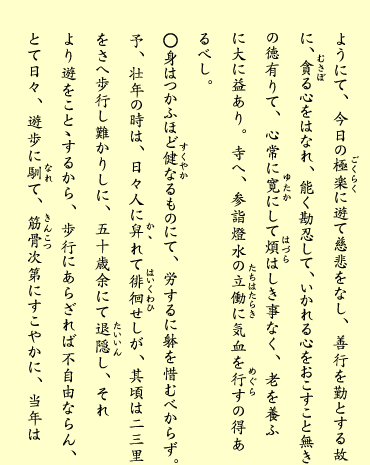 ようにて、今日の極楽に遊て慈悲をなし、善行を勤とする故
に、貪る心をはなれ、能く勘忍して、いかれる心をおこすこと無き
の徳有りて、心常に寛にして煩はしき事なく、老を養ふ
に大に益あり。寺へ、参詣燈水の立働に気血を行すの得あ
るべし。
〇身はつかふほど健なるものにて、労するに躰を惜むべからず。
予、壮年の時は、日々人に舁れて徘徊せしが、其頃は二三里
をさへ歩行し難かりしに、五十歳余にて退隠し、それ
より遊をことゝするから、歩行にあらざれば不自由ならん、
とて日々、遊歩に馴て、筋骨次第にすこやかに、当年は